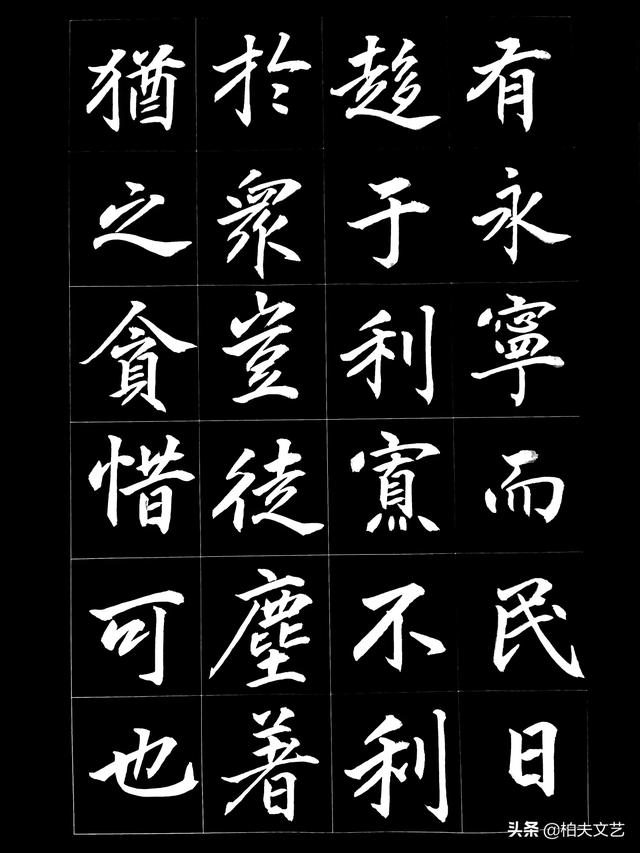 有永寧而民日
趍于利寡不利
於衆豈徒塵著
猶之貪惜可也
头条 @柏夫文艺